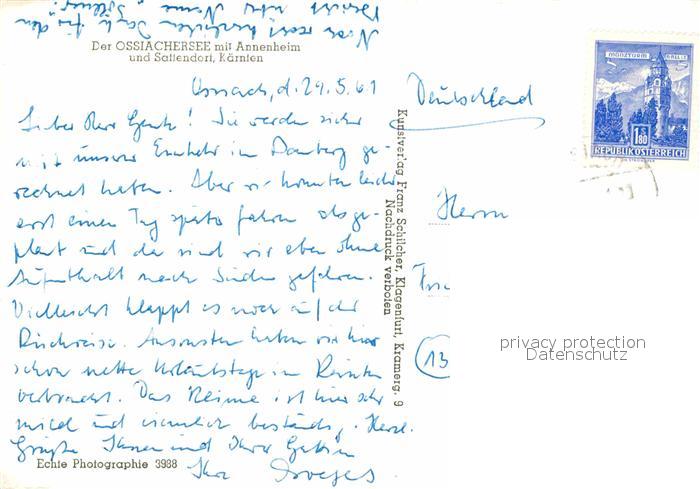 Noch recht herzlichen Dank für den
Bericht unter Neme
Der OSSIACHERSEE mit Annenheim
und Sattendorf, Kärnten
Ossiach, d. 29.5.61
Lieber Herr Genth! Sie werden sicher
mit unserer Einkehr in Bamberg ge-
rechnet haben. Aber wir konnten leider
erst einen Tag später fahren als ge-
plant und da sind wir eben ohne
Aufenthalt nach Süden gefahren.
Vielleicht klappt es noch auf der
Rückreise. Ansonsten haben wir hier
schon nette Urlaubstage in Kärnten
verbracht. Das Klima ist hier sehr
mild und ziemlich beständig. Herzl.
Grüße Ihnen und Ihrer Gattin
Ihr
Echte Photographie 3988
Kunstverlag Franz Schilcher, Klagenfurt, Kramerg. 9
Nachdruck verboten
Deutschland
MÜNZTURM HALL I. T.
1.80
REPUBLIK ÖSTERREICH
Herrn
13
privacy protection
Datenschutz